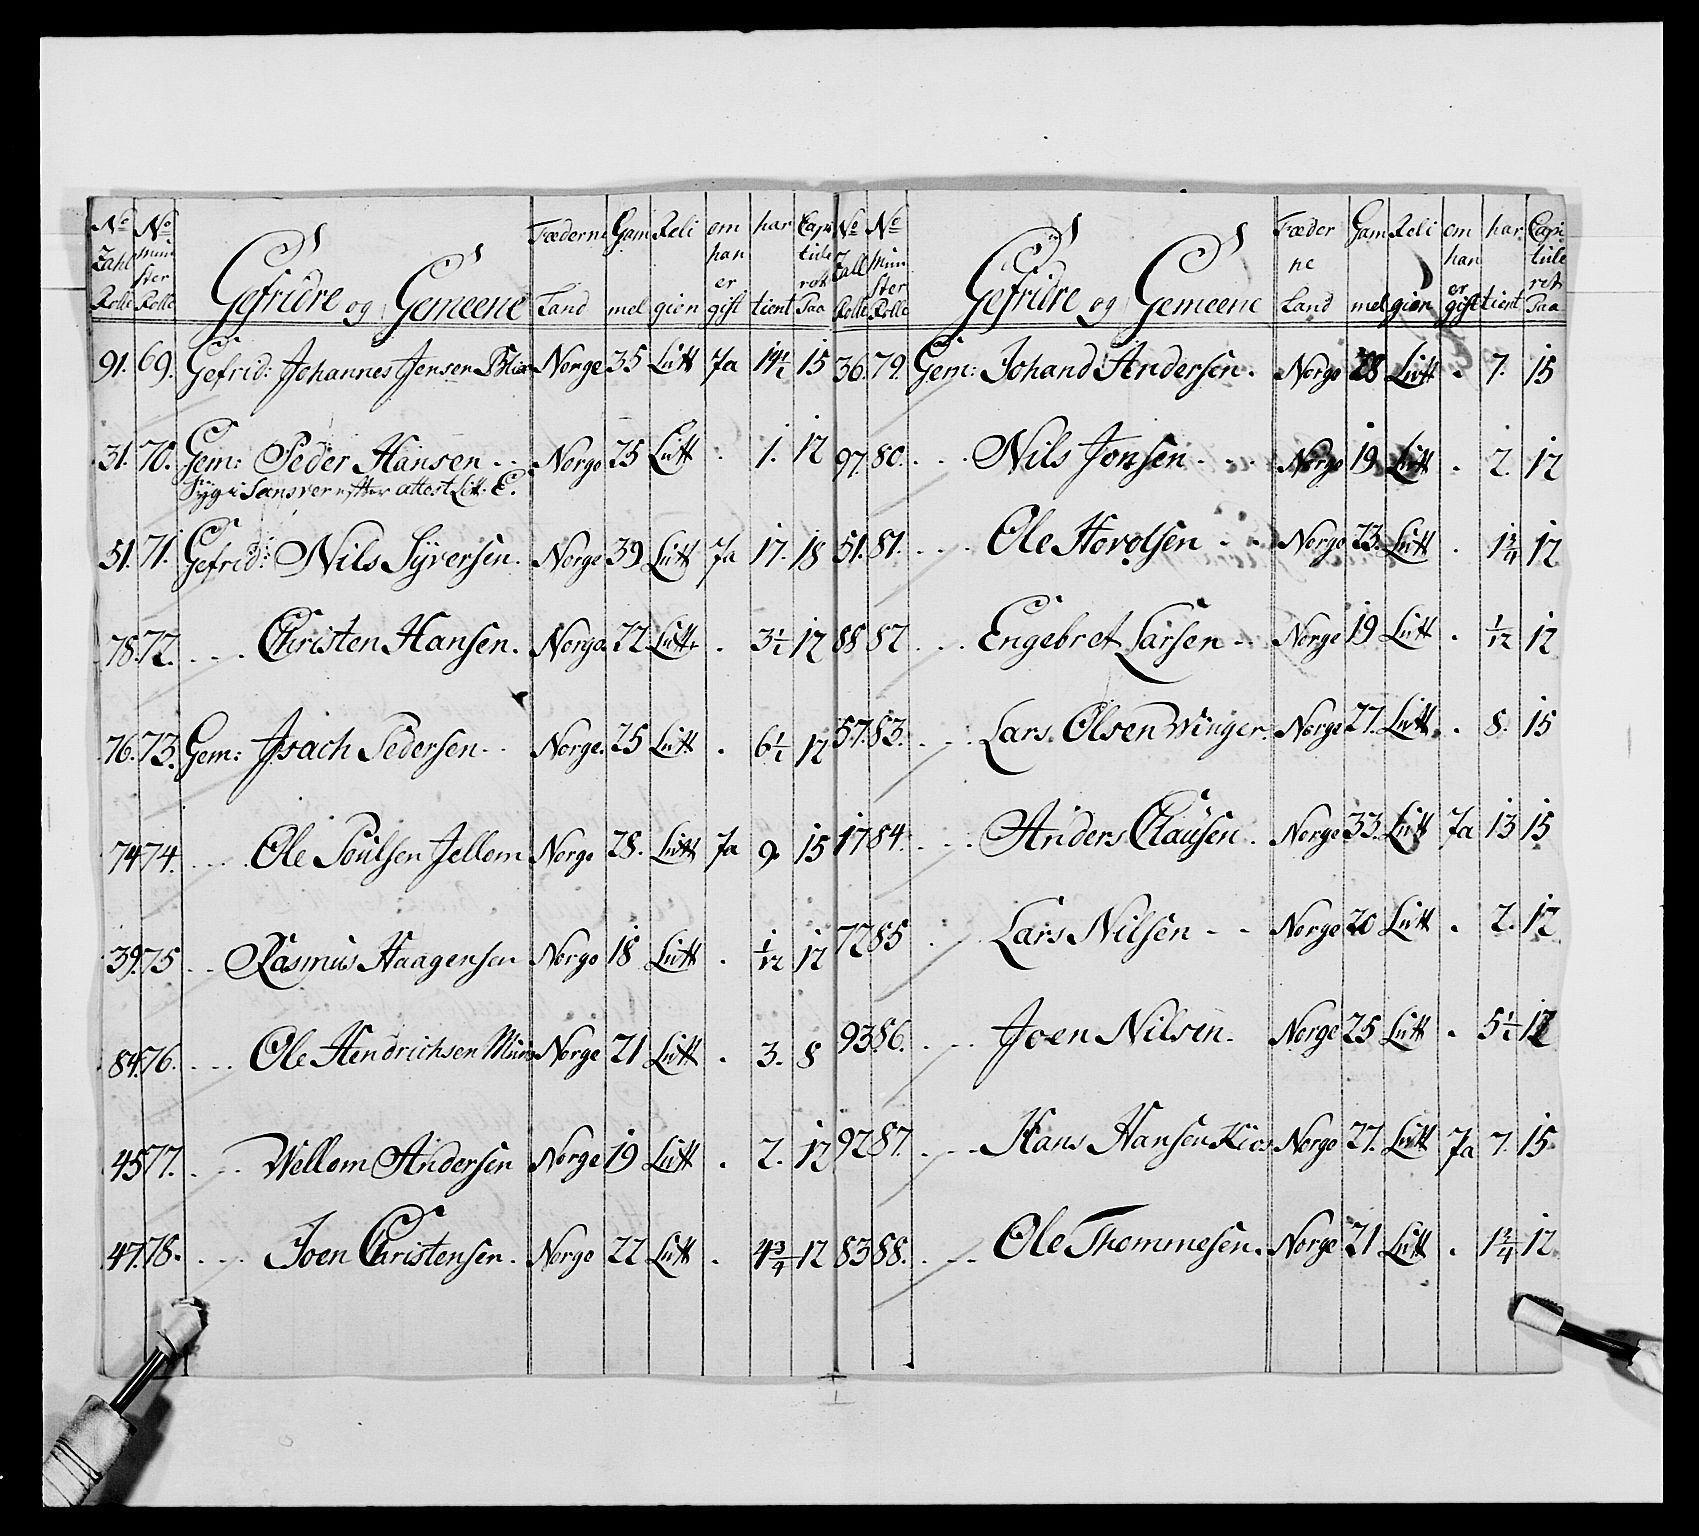 No Zahl Rolle | No Mün ster Rolle | Gefridre og Gemeene | Fæderne Land | Gam mel | Reli gion | om han er gift | har tient | Capi tule ret Paa
91. 69. Gefrid: Johannes Jensen Blix Norge 35 Lutt Ja 14½ 15
31. 70. Gem: Peder Hansen - - Norge 25 Lutt . 1. 12
Syg i Sensver efter attest Litt. E.
51. 71. Gefrid: Nils Syversen. Norge 39 Lutt Ja 17. 18
78. 72. - - - Christen Hansen. Norge 22 Lutt. . 3½ 12
76. 73. Gem: Isach Pedersen - - Norge. 25 Lutt . 6½ 12
74 74. - - - Ole Poulsen Jellom Norge 28. Lutt Ja 9. 15
39. 75 - - Rasmus Haagensen Norge 18 Lutt . 1/12 12
84. 76. - - - Ole Hendrichsen Norge 21 Lutt . 3. 8
45 77. - - - Wellom Andersen Norge 19 Lutt . 2. 12
47. 78. - - - Joen Christensen. Norge 22 Lutt . 4¾ 12
No Zall Rolle | No Mün ster Rolle | Gefridre og Gemeene | Fæder ne Land | Gam mel | Reli gion | om han er gift | har tient | Capi tule ret Paa
36. 79. Gem: Johand Andersen. Norge 28 Lutt . 7. 15
97. 80. - - - Nils Jonsen - - - Norge 19. Lutt . 2. 12
51. 81. - - - Ole Horolsen - - Norge 23. Lutt . 1¾ 12
88 82 - - - Engebret Larsen - Norge 19 Lutt . 1/12 12
57. 83. - - - Lars Olsen Winger. Norge 27. Lutt. . 8. 15
17 84. - - - Anders Clausen. Norge 33. Lutt Ja 13 15
72 85 - - Lars Nilsen - - Norge 20 Lutt . 2. 12
93 86. - - - Joen Nilsen. Norge 25 Lutt . 5½ 12
92 87. - - - Hans Hansen Norge 27. Lutt Ja 7. 15
83 88. - - - Ole Thommesen. Norge 21 Lutt . 1¾ 12